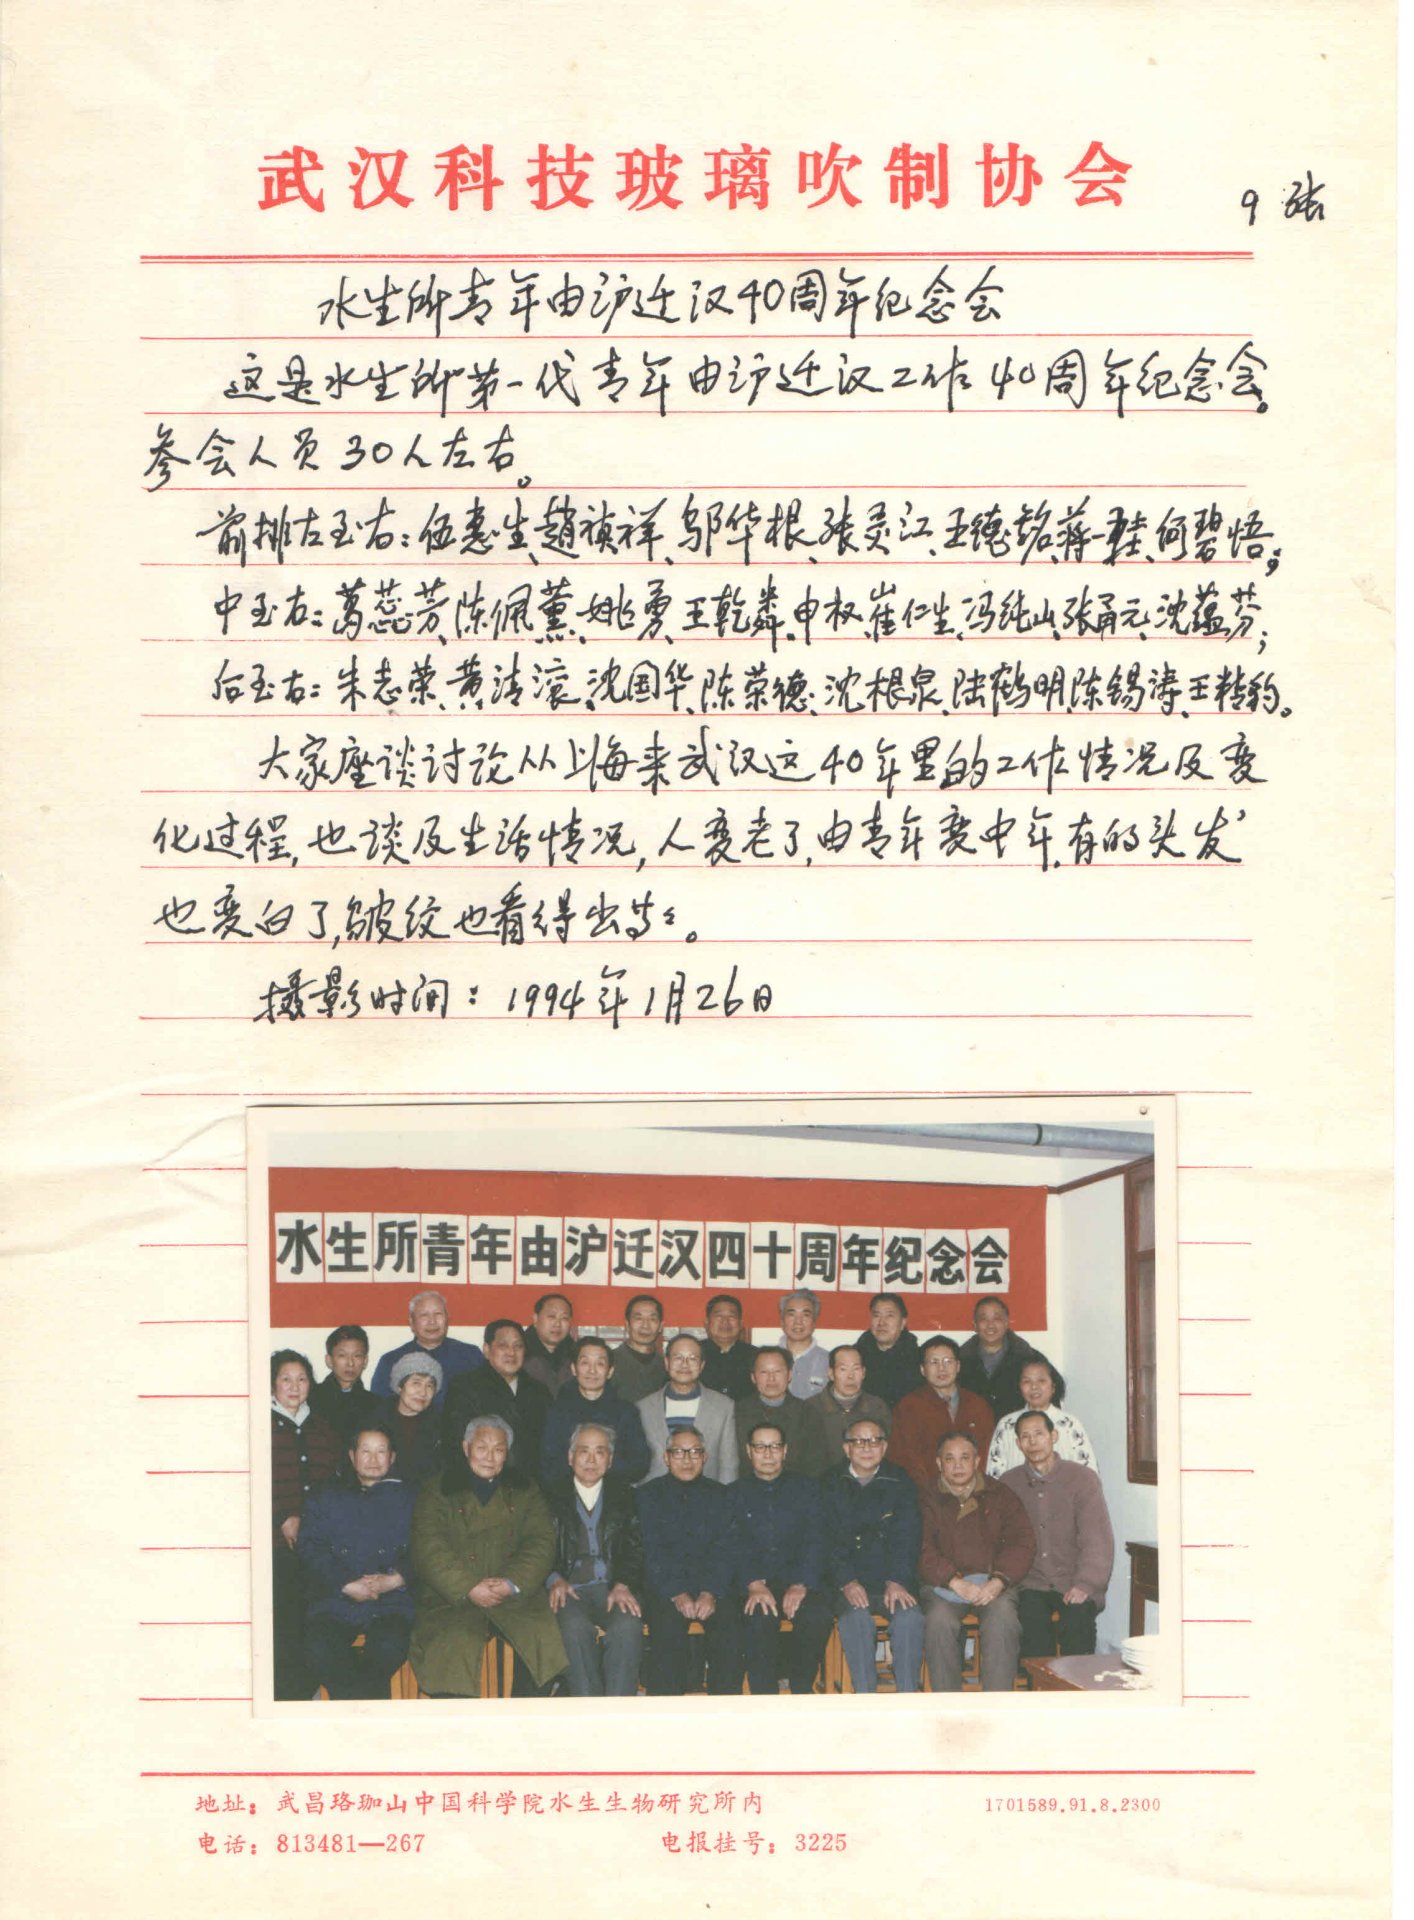 武汉科技玻璃吹制协会
9 张
水生所青年由沪迁汉40周年纪念会
这是水生所第一代青年由沪迁汉工作40周年纪念会。
参会人员30人左右。
前排左至右：伍惠生、赵祯祥、邬华根、张灵江、王德铭、蒋一珪、何碧梧；
中至右：葛蕊芳、陈佩薰、姚勇、王乾麟、申权、崔仁生、冯纯山、张甬元、沈蕴芬；
后至右：朱志荣、黄清滚、沈国华、陈荣德、沈根泉、陆鹤明、陈锡涛、王精豹。
大家座谈讨论从上海来武汉这40年里的工作情况及变
化过程，也谈及生活情况，人变老了，由青年变中年，有的头发
也变白了，皱纹也看得出等等。
摄影时间：1994年1月26日
水生所青年由沪迁汉四十周年纪念会
地址：武昌珞珈山中国科学院水生生物研究所内
1701589.91.8.2300
电话：813481—267
电报挂号：3225